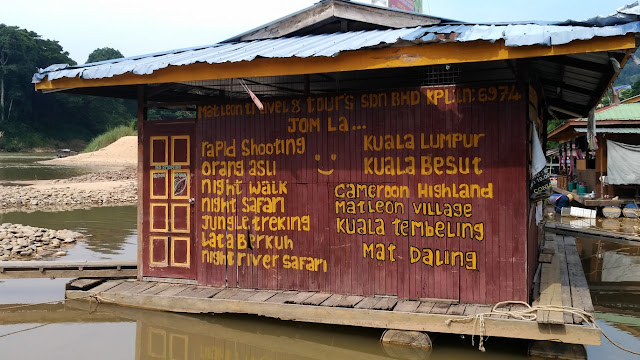 Matleon travel & tours SDN BHD KPL.N: 6974
Jom La...
rapid Shooting
orang asli
night walk
night safari
Jungle treking
Lata Berkuh
night river safari
Kuala Lumpur
Kuala Besut
Cameroon Highland
Matleon village
Kuala Tembeling
Mat Daling